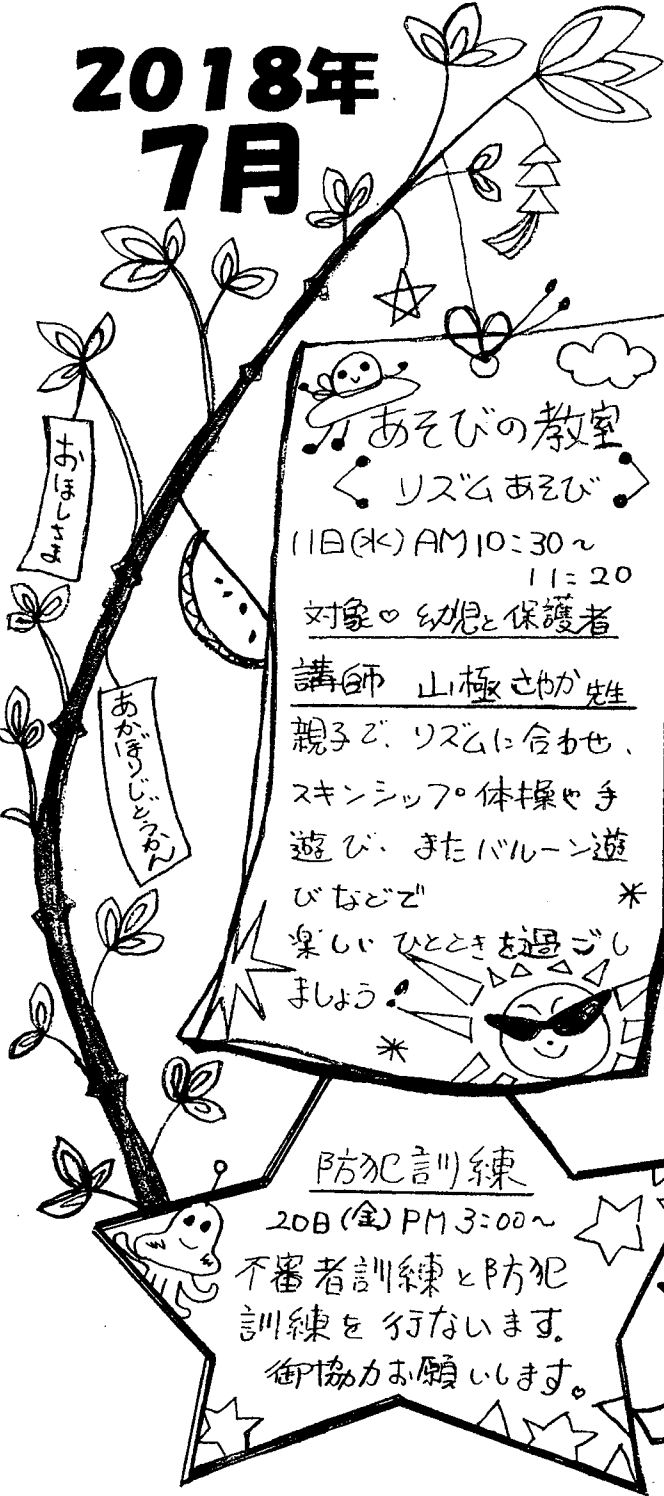 2018年
7月
おほしさま
あかぼりじどうかん
あそびの教室
リズムあそび
11日(水)AM10:30～
11:20
対象♡ 幼児と保護者
講師 山極さやか先生
親子で、リズムに合わせ、
スキンシップ体操や手
遊び、またバルーン遊
びなどで
楽しいひとときを過ごし
ましょう♪
防犯訓練
20日(金)PM3:00～
不審者訓練と防犯
訓練を行ないます。
御協力お願いします。